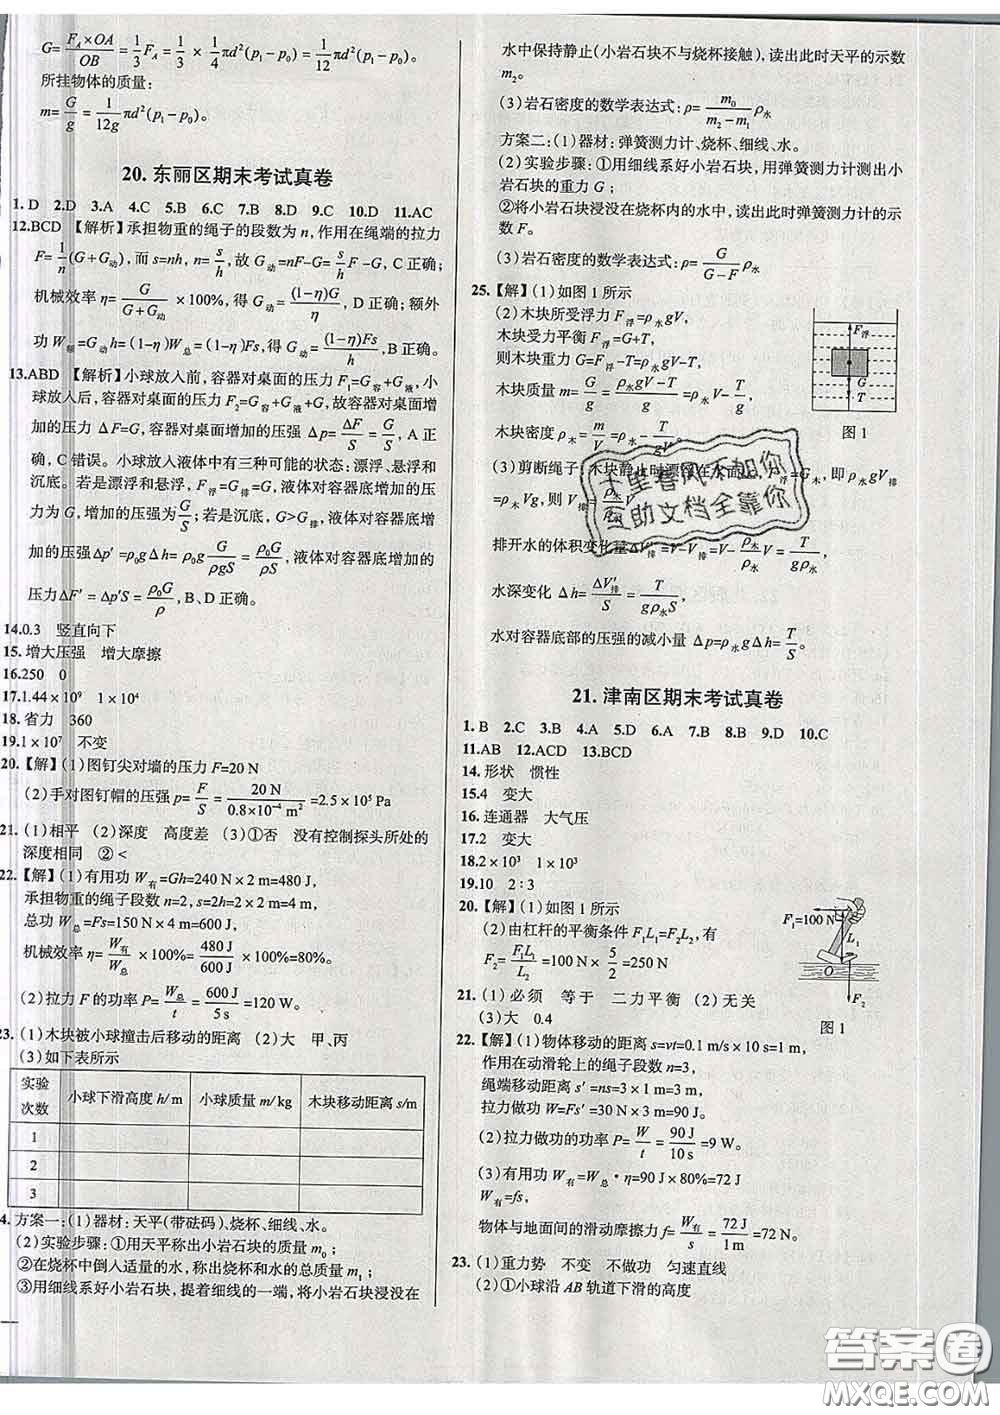 G=F_A×OA/OB=1/3 F_A=1/3×1/4πd²(p₁-p₀)=1/12πd²(p₁-p₀)。
所挂物体的质量:
m=G/g=1/12g πd²(p₁-p₀)。
20. 东丽区期末考试真卷
1. D 2.D 3.A 4.C 5.B 6.C 7.B 8.D 9.C 10.D 11.AC
12.BCD 【解析】承担物重的绳子的段数为 n,作用在绳端的拉力
F=1/n(G+G动),而 s=nh, n=s/h,故 G动=nF-G=s/h F-G, C 正确;
机械效率 η=G/(G+G动)×100%,得 G动=(1-η)G/η, D 正确;额外
功 W额=G动h=(1-η)W总=(1-η)Fs,得 G动=(1-η)Fs/h, B 正确。
13.ABD 【解析】小球放入前,容器对桌面的压力 F₁=G容+G液,小
球放入后,容器对桌面的压力 F₂=G容+G液+G,故容器对桌面增
加的压力 ΔF=G,容器对桌面增加的压强 Δp=ΔF/S=G/S, A 正
确, C 错误。小球放入液体中有三种可能的状态:漂浮、悬浮和
沉底。若是漂浮和悬浮, F浮=G排=G,液体对容器底增加的压
力为 G,增加的压强为G/S;若是沉底, G>G排,液体对容器底增
加的压强Δp′=ρ₀gΔh=ρ₀g G/ρgS=ρ₀G/ρS,液体对容器底增加的
压力ΔF′=Δp′S=ρ₀G/ρ, B、D 正确。
14.0.3 竖直向下
15. 增大压强 增大摩擦
16.250 0
17.1.44×10⁹ 1×10⁴
18. 省力 360
19.1×10⁷ 不变
20.【解】(1)图钉尖对墙的压力 F=20 N
(2)手对图钉帽的压强 p=F/S=20 N/0.8×10⁻⁴ m²=2.5×10⁵ Pa
21. (1)相平 (2)深度 高度差 (3)①否 没有控制探头所处的
深度相同 ②<
22.【解】(1)有用功 W有=Gh=240 N×2 m=480 J,
承担物重的绳子段数 n=2, s=2h=2×2 m=4 m,
总功 W总=Fs=150 N×4 m=600 J,
机械效率 η=W有/W总×100%=480 J/600 J×100%=80%。
(2)拉力 F 的功率 P=W总/t=600 J/5 s=120 W。
23. (1)木块被小球撞击后移动的距离 (2)大 甲、丙
(3)如下表所示
实验次数 小球下滑高度 h/m 小球质量 m/kg 木块移动距离 s/m
1
2
3
4. 方案一:(1)器材:天平(带砝码)、烧杯、细线、水。
(2)实验步骤:①用天平称出小岩石块的质量 m₀;
②在烧杯中倒人适量的水,称出烧杯和水的总质量 m₁;
③用细线系好小岩石块,提着细线的一端,将小岩石块浸没在
水中保持静止(小岩石块不与烧杯接触),读出此时天平的示数
m₂。
(3)岩石密度的数学表达式:ρ=m₀/(m₂-m₁) ρ水
方案二:(1)器材:弹簧测力计、烧杯、细线、水。
(2)实验步骤:①用细线系好小岩石块,用弹簧测力计测出小
岩石块的重力 G;
②将小岩石块浸没在烧杯内的水中,读出此时弹簧测力计的示
数 F。
(3)岩石密度的数学表达式:ρ=G/(G-F) ρ水
25.【解】(1)如图 1 所示
(2)木块所受浮力 F浮=ρ水gV,
木块受力平衡 F浮=G+T,
则木块重力 G=F浮-T=ρ水gV-T
木块质量 m=G/g=(ρ水gV-T)/g=ρ水V-T/g
木块密度 ρ木=m/V=ρ水-T/gV
F浮
G
T
图 1
(3)剪断绳子,木块静止时漂浮在水面 =G木,即 ρ水gV排
=ρ木Vg,则 V排
排开水的体积变化量ΔV′排=V-V排=V-ρ木/ρ水 V=T/gρ水
水深变化 Δh=ΔV′排/S=T/gρ水S
水对容器底部的压强的减小量 Δp=ρ水gΔh=T/S。
千里春风不如你
互助文档全靠你
21. 津南区期末考试真卷
1. B 2.C 3.B 4.A 5.D 6.A 7.B 8.B 9.D 10.C
11.AB 12.ACD 13.BCD
14. 形状 惯性
15.4 变大
16. 连通器 大气压
17.2 变大
18.2×10³ 1×10³
19.10 2:3
20.【解】(1)如图 1 所示
(2)由杠杆的平衡条件 F₁L₁=F₂L₂,有
F₂=F₁L₁/L₂=100 N×5/2=250 N
F₁=100 N
L₁
O
F₂
图 1
21. (1)必须 等于 二力平衡 (2)无关
(3)大 0.4
22.【解】(1)物体移动的距离 s=vt=0.1 m/s×10 s=1 m,
作用在动滑轮上的绳子段数 n=3,
绳端移动距离 s′=ns=3×1 m=3 m,
拉力做功 W=Fs′=30 N×3 m=90 J。
(2)拉力做功的功率 P=W/t=90 J/10 s=9 W。
(3)有用功 W有=W总·η=90 J×80%=72 J
W有=fs,
物体与地面间的滑动摩擦力 f=W有/s=72 J/1 m=72 N。
23. (1)重力势 不变 不做功 匀速直线
(2)①小球沿 AB 轨道下滑的高度
答案圈
MXQE.COM